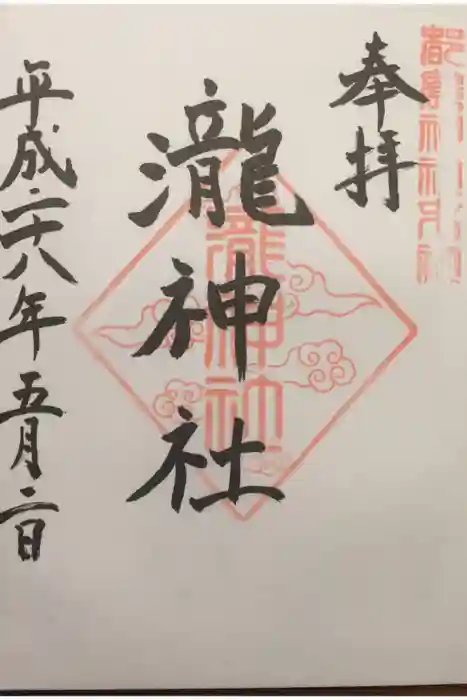 奉拝
瀧神社
瀧神社
平成二十八年五月二日